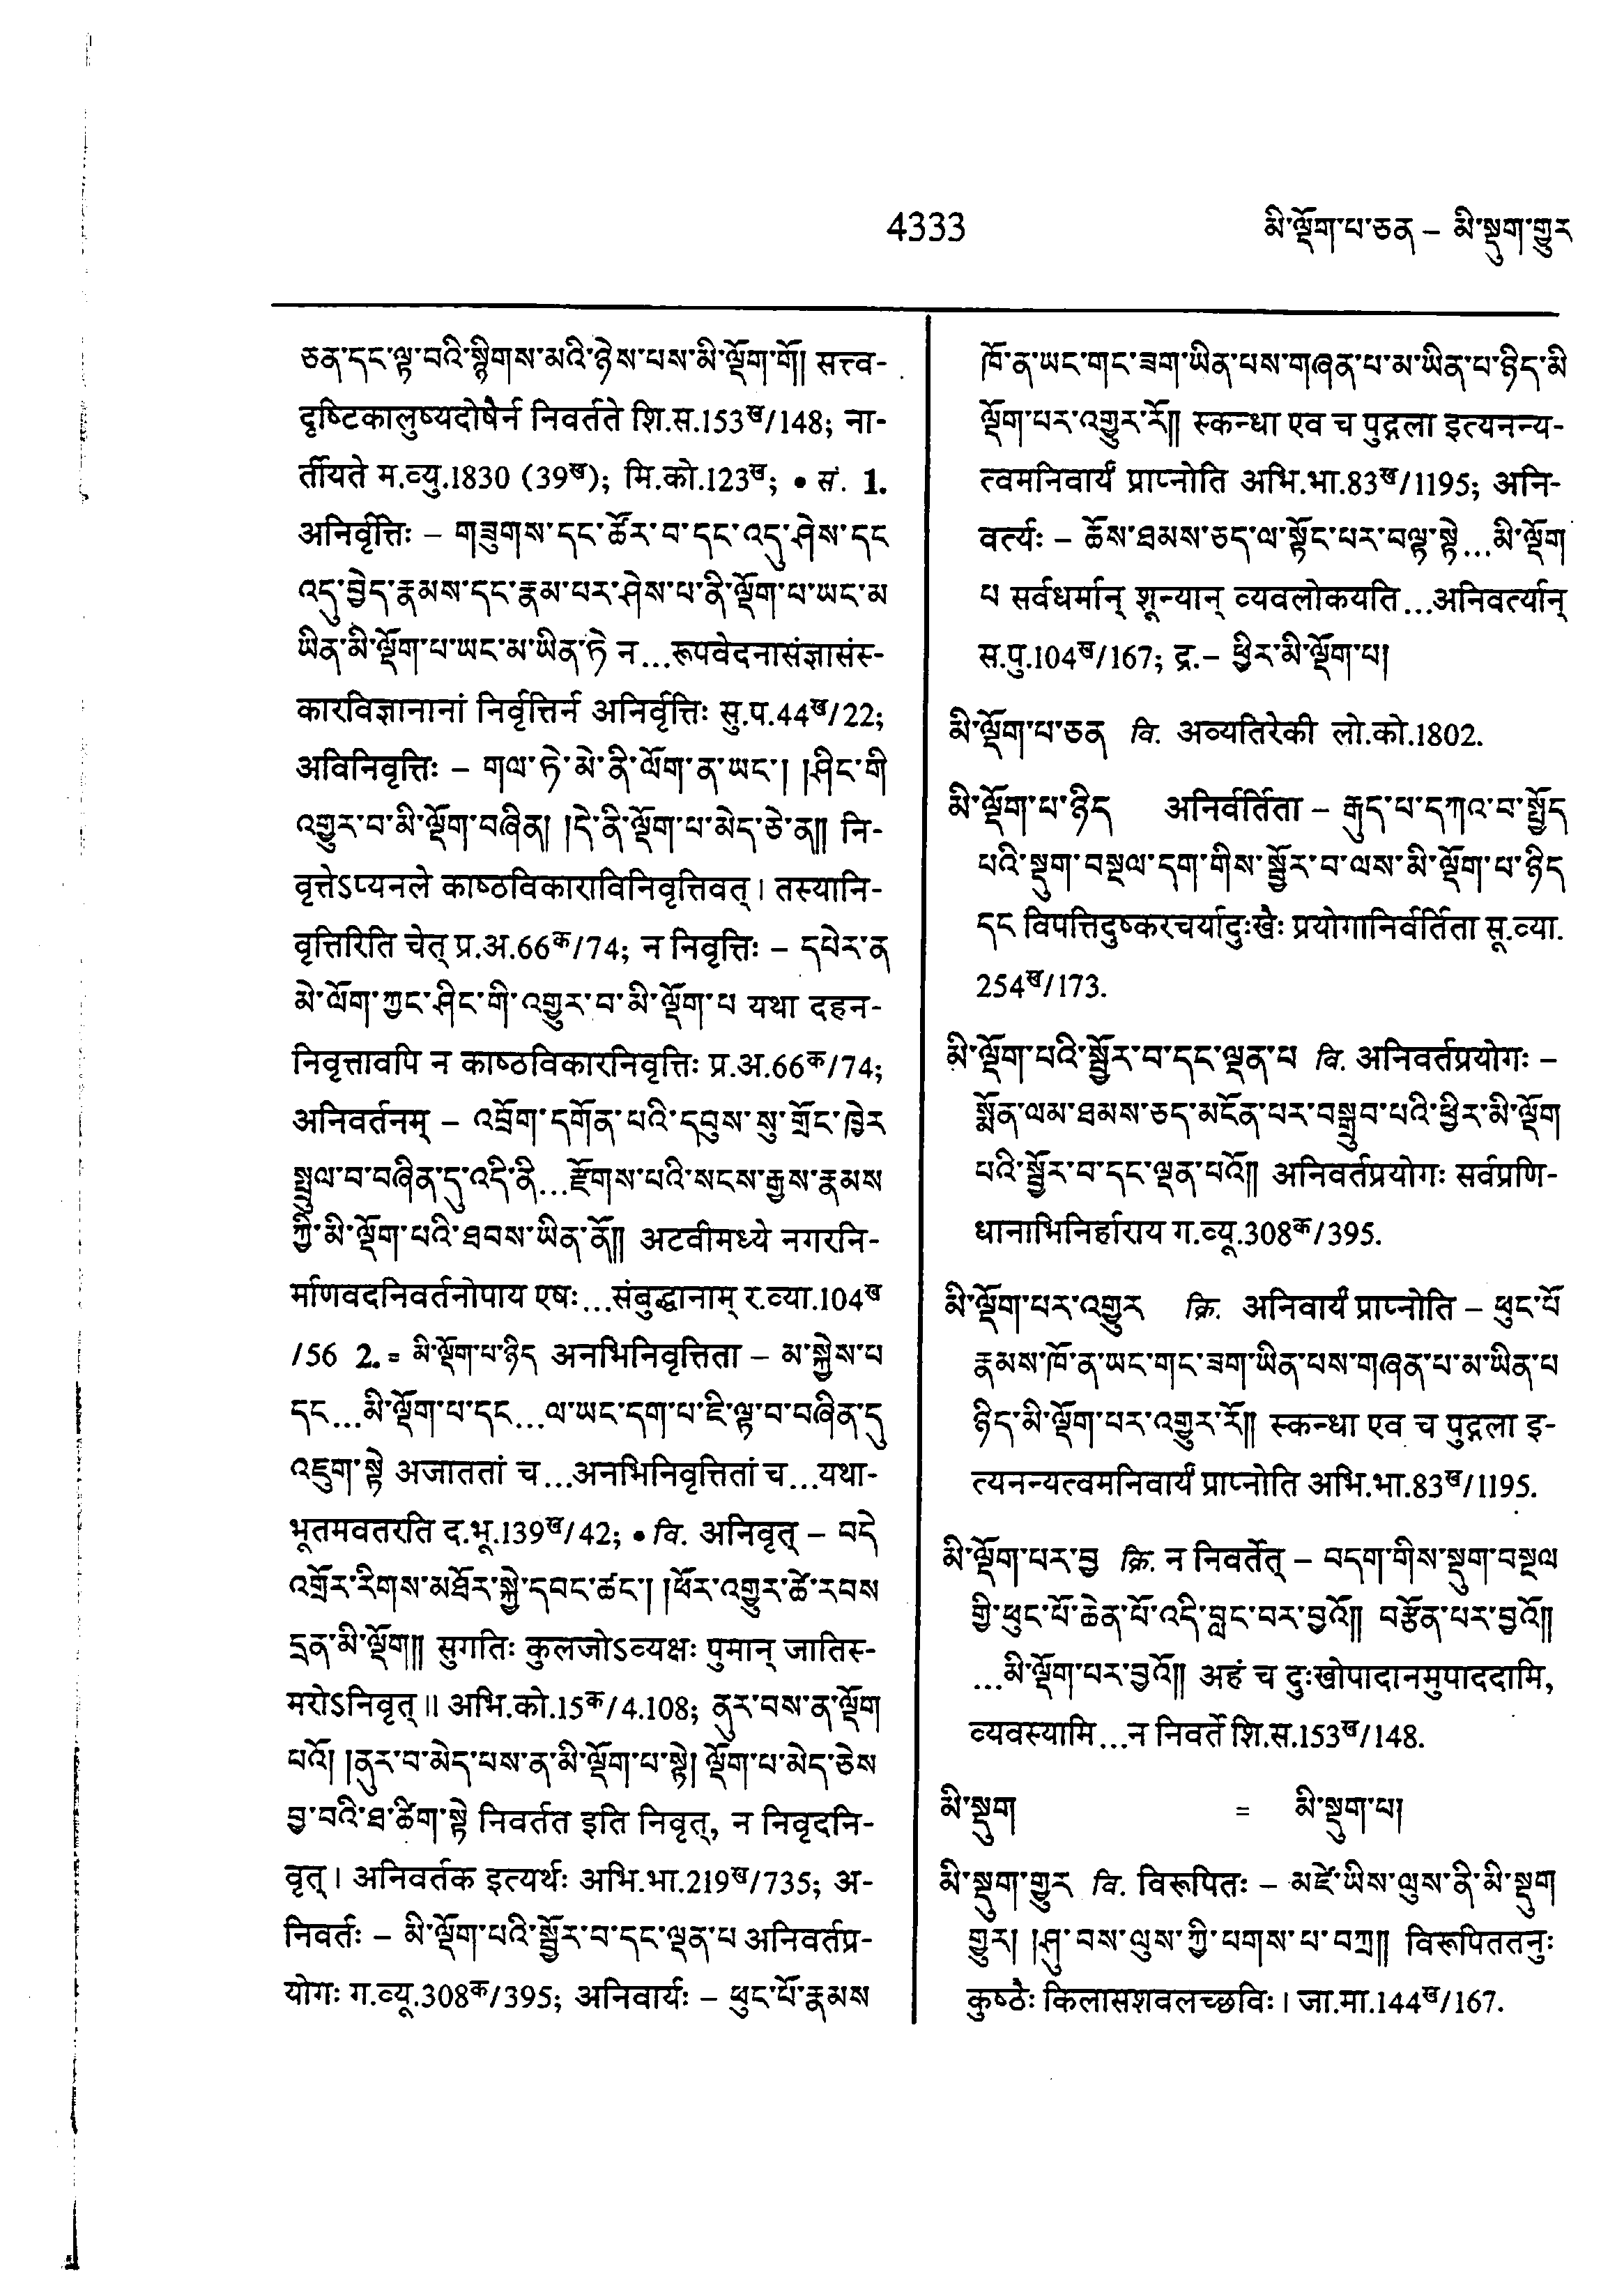 4333
མི་ལྡོག་པ་ཅན – མི་སྡུག་གྱུར
ཅན་དང་ལྟ་བའི་སྙིགས་མའི་ཉེས་པས་མི་ལྡོག་གོ། सत्त्व-
दृष्टिकालुष्यदोषैर्न निवर्तते शि.स.153ख/148; ना-
र्तीयते म.व्यु.1830 (39ख); मि.को.123ख; • सं. 1.
अनिर्वृत्तिः – གཟུགས་དང་ཚོར་བ་དང་འདུ་ཤེས་དང
འདུ་བྱེད་རྣམས་དང་རྣམ་པར་ཤེས་པ་ནི་ལྡོག་པ་ཡང་མ
ཡིན་མི་ལྡོག་པ་ཡང་མ་ཡིན་ཏེ न...रूपवेदनासंज्ञासंस्-
कारविज्ञानानां निर्वृत्तिर्न अनिर्वृत्तिः सु.प.44ख/22;
अविनिवृत्तिः – གལ་ཏེ་མེ་ནི་ལོག་ན་ཡང་། །ཤིང་གི
འགྱུར་བ་མི་ལྡོག་བཞིན། །དེ་ནི་ལྡོག་པ་མེད་ཅེ་ན།། नि-
वृत्तेऽप्यनले काष्ठविकाराविनिवृत्तिवत्। तस्यानि-
वृत्तिरिति चेत् प्र.अ.66क/74; न निवृत्तिः – དཔེར་ན
མེ་ལོག་ཀྱང་ཤིང་གི་འགྱུར་བ་མི་ལྡོག་པ यथा दहन-
निवृत्तावपि न काष्ठविकारनिवृत्तिः प्र.अ.66क/74;
अनिवर्तनम् – འབྲོག་དགོན་པའི་དབུས་སུ་གྲོང་ཁྱེར
སྤྲུལ་བ་བཞིན་དུ་འདི་ནི...རྫོགས་པའི་སངས་རྒྱས་རྣམས
ཀྱི་མི་ལྡོག་པའི་ཐབས་ཡིན་ནོ།། अटवीमध्ये नगरनि-
र्माणवदनिवर्तनोपाय एषः...संबुद्धानाम् र.व्या.104ख
/56 2. = མི་ལྡོག་པ་ཉིད अनभिनिवृत्तिता – མ་སྐྱེས་པ
དང...མི་ལྡོག་པ་དང...ལ་ཡང་དག་པ་ཇི་ལྟ་བ་བཞིན་དུ
འཇུག་སྟེ अजाततां च...अनभिनिवृत्तितां च...यथा-
भूतमवतरति द.भू.139ख/42; • वि. अनिवृत् – བདེ
འགྲོར་རིགས་མཐོར་སྐྱེ་དབང་ཚང་། །ཕོར་འགྱུར་ཚེ་རབས
དྲན་མི་ལྡོག།། सुगतिः कुलजोऽव्यक्षः पुमान् जातिस्-
मरोऽनिवृत्॥ अभि.को.15क/4.108; ནུར་བས་ན་ལྡོག
པའོ། །ནུར་བ་མེད་པས་ན་མི་ལྡོག་པ་སྟེ། ལྡོག་པ་མེད་ཅེས
བྱ་བའི་ཐ་ཚིག་སྟེ निवर्तत इति निवृत्, न निवृदनि-
वृत्। अनिवर्तक इत्यर्थः अभि.भा.219ख/735; अ-
निवर्तः – མི་ལྡོག་པའི་སྦྱོར་བ་དང་ལྡན་པ अनिवर्तप्र-
योगः ग.व्यू.308क/395; अनिवार्यः – ཕུང་པོ་རྣམས
ཁོ་ན་ཡང་གང་ཟག་ཡིན་པས་གཞན་པ་མ་ཡིན་པ་ཉིད་མི
ལྡོག་པར་འགྱུར་རོ།། स्कन्धा एव च पुद्गला इत्यनन्य-
त्वमनिवार्यं प्राप्नोति अभि.भा.83ख/1195; अनि-
वर्त्यः – ཆོས་ཐམས་ཅད་ལ་སྟོང་པར་བལྟ་སྟེ...མི་ལྡོག
པ सर्वधर्मान् शून्यान् व्यवलोकयति...अनिवर्त्यान्
स.पु.104ख/167; द्र.– ཕྱིར་མི་ལྡོག་པ།
མི་ལྡོག་པ་ཅན वि. अव्यतिरेकी लो.को.1802.
མི་ལྡོག་པ་ཉིད अनिर्वर्तिता – རྒུད་པ་དཀའ་བ་སྤྱོད
པའི་སྡུག་བསྔལ་དག་གིས་སྦྱོར་བ་ལས་མི་ལྡོག་པ་ཉིད
དང विपत्तिदुष्करचर्यादुःखैः प्रयोगानिर्वर्तिता सू.व्या.
254ख/173.
མི་ལྡོག་པའི་སྦྱོར་བ་དང་ལྡན་པ वि. अनिवर्तप्रयोगः –
སྨོན་ལམ་ཐམས་ཅད་མངོན་པར་བསྒྲུབ་པའི་ཕྱིར་མི་ལྡོག
པའི་སྦྱོར་བ་དང་ལྡན་པའོ།། अनिवर्तप्रयोगः सर्वप्रणि-
धानाभिनिर्हाराय ग.व्यू.308क/395.
མི་ལྡོག་པར་འགྱུར क्रि. अनिवार्यं प्राप्नोति – ཕུང་པོ
རྣམས་ཁོ་ན་ཡང་གང་ཟག་ཡིན་པས་གཞན་པ་མ་ཡིན་པ
ཉིད་མི་ལྡོག་པར་འགྱུར་རོ།། स्कन्धा एव च पुद्गला इ-
त्यनन्यत्वमनिवार्यं प्राप्नोति अभि.भा.83ख/1195.
མི་ལྡོག་པར་བྱ क्रि. न निवर्तेत् – བདག་གིས་སྡུག་བསྔལ
གྱི་ཕུང་པོ་ཆེན་པོ་འདི་བླང་བར་བྱའོ།། བརྩོན་པར་བྱའོ།།
...མི་ལྡོག་པར་བྱའོ།། अहं च दुःखोपादानमुपाददामि,
व्यवस्यामि...न निवर्ते शि.स.153ख/148.
མི་སྡུག = མི་སྡུག་པ།
མི་སྡུག་གྱུར वि. विरूपितः – མཛེ་ཡིས་ལུས་ནི་མི་སྡུག
གྱུར། །ཤུ་བས་ལུས་ཀྱི་པགས་པ་བཀྲ།། विरूपिततनुः
कुष्ठैः किलासशवलच्छविः। जा.मा.144ख/167.